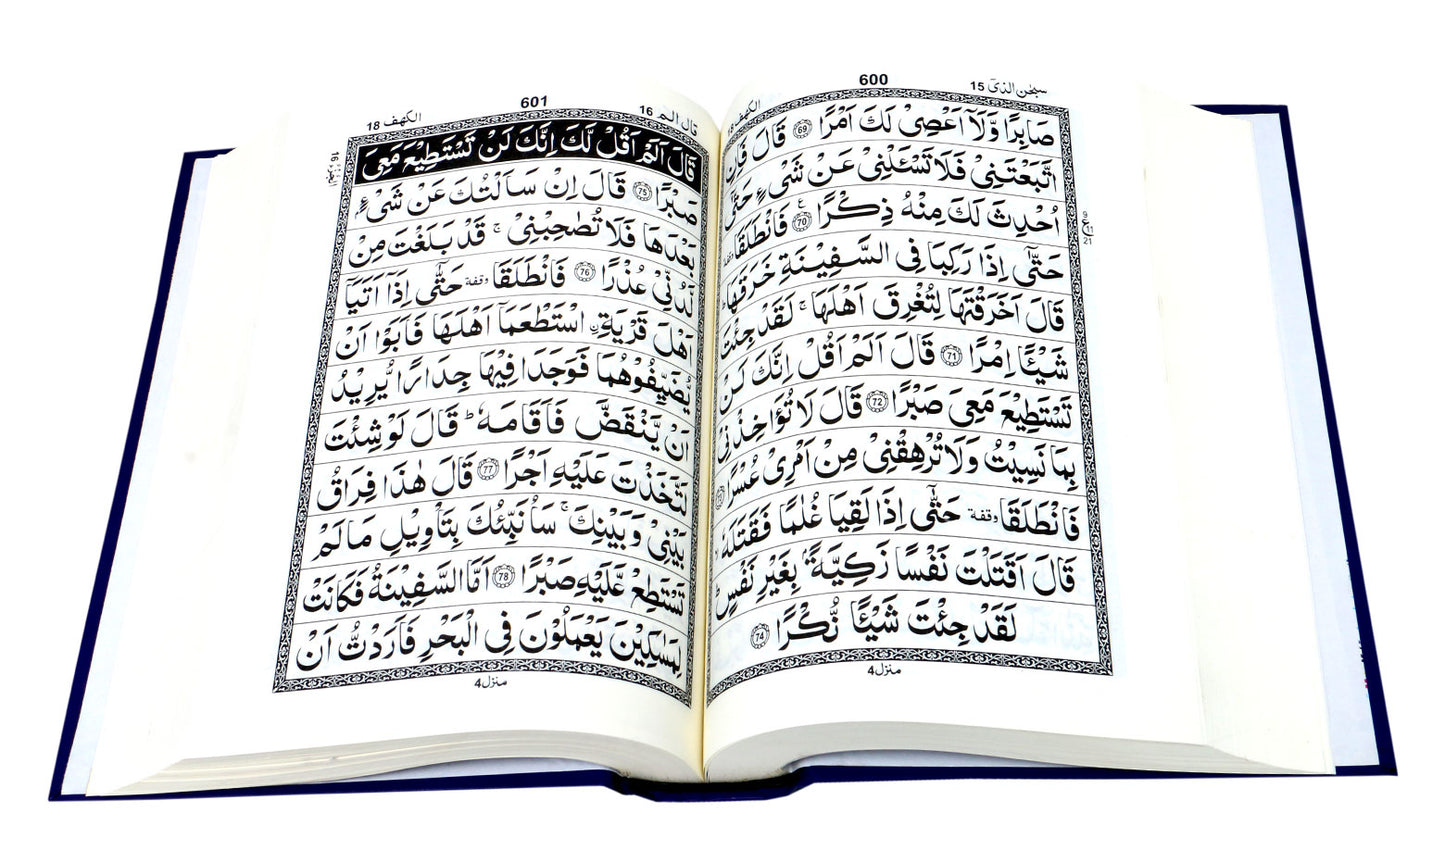 600
سبحن الذی 15
الكهف 18
صَابِرًا وَّلَاۤ اَعْصِیْ لَكَ اَمْرًا 69 قَالَ فَاِنِ
اتَّبَعْتَنِیْ فَلَا تَسْـَٔلْنِیْ عَنْ شَیْءٍ حَتّٰۤی
اُحْدِثَ لَكَ مِنْهُ ذِكْرًا 70 فَانْطَلَقَا وقفة
حَتّٰۤی اِذَا رَكِبَا فِی السَّفِیْنَةِ خَرَقَهَا ؕ
قَالَ اَخَرَقْتَهَا لِتُغْرِقَ اَهْلَهَا ۚ لَقَدْ جِئْتَ
شَیْـًٔا اِمْرًا 71 قَالَ اَلَمْ اَقُلْ اِنَّكَ لَنْ
تَسْتَطِیْعَ مَعِیَ صَبْرًا 72 قَالَ لَا تُؤَاخِذْنِیْ
بِمَا نَسِیْتُ وَ لَا تُرْهِقْنِیْ مِنْ اَمْرِیْ عُسْرًا 73
فَانْطَلَقَا وقفة حَتّٰۤی اِذَا لَقِیَا غُلٰمًا فَقَتَلَهٗ ۙ
قَالَ اَقَتَلْتَ نَفْسًا زَكِیَّةًۢ بِغَیْرِ نَفْسٍ ؕ
لَقَدْ جِئْتَ شَیْـًٔا نُّكْرًا 74
منزل 4
9
ع 11
21
601
قال الم 16
الكهف 18
16
قَالَ اَلَمْ اَقُلْ لَّكَ اِنَّكَ لَنْ تَسْتَطِیْعَ مَعِیَ
صَبْرًا 75 قَالَ اِنْ سَاَلْتُكَ عَنْ شَیْءٍۭ
بَعْدَهَا فَلَا تُصٰحِبْنِیْ ۚ قَدْ بَلَغْتَ مِنْ
لَّدُنِّیْ عُذْرًا 76 فَانْطَلَقَا وقفة حَتّٰۤی اِذَاۤ اَتَیَاۤ
اَهْلَ قَرْیَةِ ِ۟اسْتَطْعَمَاۤ اَهْلَهَا فَاَبَوْا اَنْ
یُّضَیِّفُوْهُمَا فَوَجَدَا فِیْهَا جِدَارًا یُّرِیْدُ
اَنْ یَّنْقَضَّ فَاَقَامَهٗ ؕ قَالَ لَوْ شِئْتَ
لَتَّخَذْتَ عَلَیْهِ اَجْرًا 77 قَالَ هٰذَا فِرَاقُ
بَیْنِیْ وَ بَیْنِكَ ۚ سَاُنَبِّئُكَ بِتَاْوِیْلِ مَا لَمْ
تَسْتَطِعْ عَّلَیْهِ صَبْرًا 78 اَمَّا السَّفِیْنَةُ فَكَانَتْ
لِمَسٰكِیْنَ یَعْمَلُوْنَ فِی الْبَحْرِ فَاَرَدْتُّ اَنْ
منزل 4